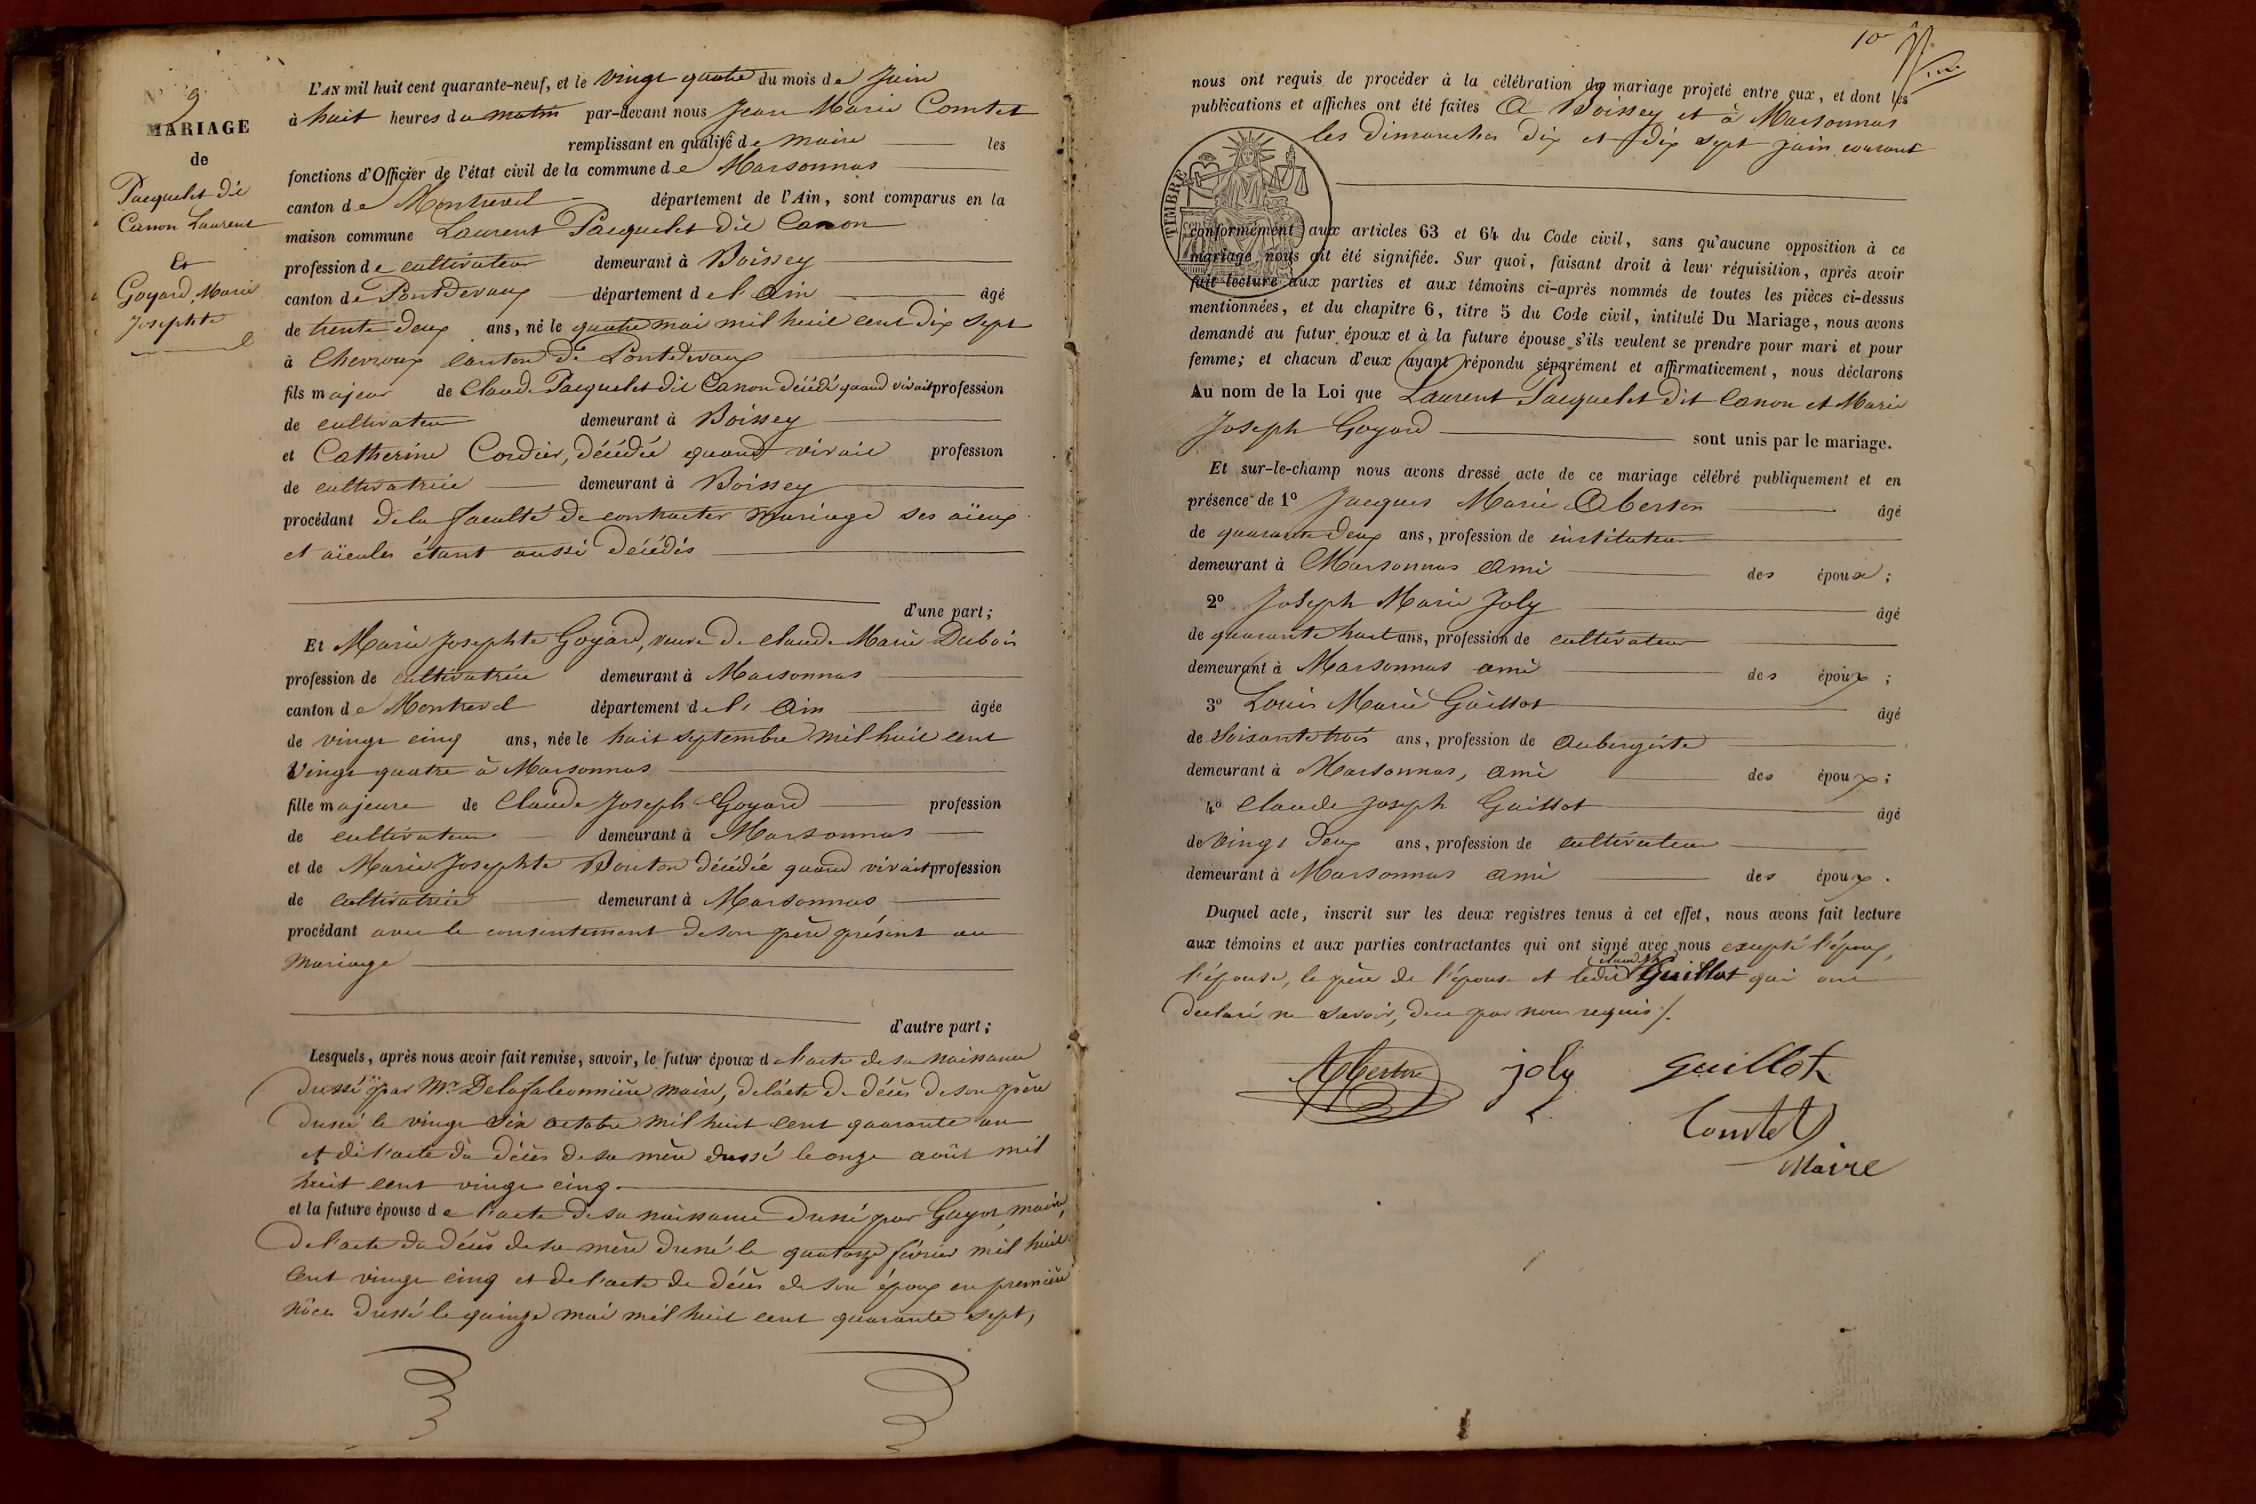 9
MARIAGE
de
Pacquelet dit
Canon Laurent
Et
Goyard, Marie
Josephte
L'AN mil huit cent quarante-neuf, et le vingt quatre du mois de Juin
à huit heures du matin par-devant nous Jean Marie Comtet
remplissant en qualité de maire les
fonctions d'Officier de l'état civil de la commune de Marsonnas
canton de Montrevel département de l'Ain, sont comparus en la
maison commune Laurent Pacquelet dit Canon
profession de cultivateur demeurant à Boissey
canton de Pontdevaux département de l'Ain âgé
de trente deux ans, né le quatre mai mil huit cent dix sept
à Chevroux canton de Pontdevaux
fils majeur de Claude Pacquelet dit Canon décédé quand vivait profession
de cultivateur demeurant à Boissey
et Catherine Cordier, décédée quand vivait profession
de cultivatrice demeurant à Boissey
procédant de la faculté de contracter mariage ses aïeux
et aïeules étant aussi décédés
d'une part;
Et Marie Josephte Goyard, veuve de Claude Marie Dubois
profession de cultivatrice demeurant à Marsonnas
canton de Montrevel département de l'Ain âgée
de vingt cinq ans, née le huit septembre mil huit cent
vingt quatre à Marsonnas
fille majeure de Claude Joseph Goyard profession
de cultivateur demeurant à Marsonnas
et de Marie Josephte Bouton décédée quand vivait profession
de cultivatrice demeurant à Marsonnas
procédant avec le consentement de son père présent au
mariage
d'autre part;
Lesquels, après nous avoir fait remise, savoir, le futur époux de l'acte de sa naissance
dressé par Mr Delafalconnière maire, de l'acte de décès de son père
dressé le vingt six octobre mil huit cent quarante un
et de l'acte de décès de sa mère dressé le onze août mil
huit cent vingt cinq
et la future épouse de l'acte de sa naissance dressé par Guyot, maire,
de l'acte de décès de sa mère dressé le quatorze février mil huit
cent vingt cinq et de l'acte de décès de son époux en première
nôces dressé le quinze mai mil huit cent quarante sept,
10
nous ont requis de procéder à la célébration du mariage projeté entre eux, et dont les
publications et affiches ont été faites à Boissey et à Marsonnas
les dimanches dix et dix sept juin courant
TIMBRE
conformément aux articles 63 et 64 du Code civil, sans qu'aucune opposition à ce
mariage nous ait été signifiée. Sur quoi, faisant droit à leur réquisition, après avoir
fait lecture aux parties et aux témoins ci-après nommés de toutes les pièces ci-dessus
mentionnées, et du chapitre 6, titre 5 du Code civil, intitulé Du Mariage, nous avons
demandé au futur époux et à la future épouse s'ils veulent se prendre pour mari et pour
femme; et chacun d'eux ayant répondu séparément et affirmativement, nous déclarons
Au nom de la Loi que Laurent Pacquelet dit Canon et Marie
Joseph Goyard sont unis par le mariage.
Et sur-le-champ nous avons dressé acte de ce mariage célébré publiquement et en
présence de 1º Jacques Marie Aberton âgé
de quarante deux ans, profession de instituteur
demeurant à Marsonnas ami des époux;
2º Joseph Marie Joly âgé
de quarante huit ans, profession de cultivateur
demeurant à Marsonnas ami des époux;
3º Louis Marie Guillot âgé
de soixante trois ans, profession de aubergiste
demeurant à Marsonnas, ami des époux;
4º Claude Joseph Guillot âgé
de vingt deux ans, profession de cultivateur
demeurant à Marsonnas ami des époux.
Duquel acte, inscrit sur les deux registres tenus à cet effet, nous avons fait lecture
aux témoins et aux parties contractantes qui ont signé avec nous excepté l'époux,
l'épouse, le père de l'épouse et ledit Guillot qui ont
déclaré ne savoir, de ce par nous requis /.
Aberton joly guillot
Comtet
Maire